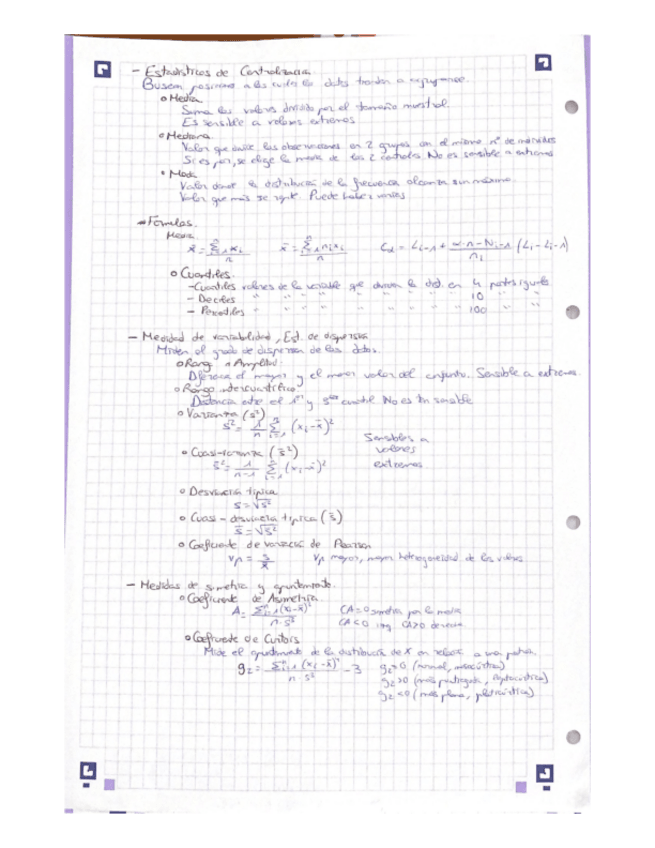 - Estadísticos de Centralización.
Buscan posiciones a las cuales los datos tienden a agruparse.
o Media
Suma los valores dividido por el tamaño muestral.
Es sensible a valores extremos
o Mediana
Valor que divide las observaciones en 2 grupos con el mismo nº de
Si es par, se elige la media de los 2 centrales. No es sensible a extremos
• Moda
Valor donde la distribución de la frecuencia alcanza su máximo.
Valor que más se repite. Puede haber varias
Fórmulas.
Media
x̄ = Σⁿᵢ₌₁ xᵢ / n   x̄ = Σⁿᵢ₌₁ nᵢxᵢ / n   = Lᵢ₋₁ + α·n - Nᵢ₋₁ / nᵢ (Lᵢ - Lᵢ₋₁)
o Cuantiles.
- Cuartiles valores de la variable que dividen la dist. en 4 partes iguales
- Deciles " " " " " " " " 10 " "
- Percentiles " " " " " " " " 100 " "
- Medidas de variabilidad, Est. de dispersión
Miden el grado de dispersión de los datos.
o Rango o Amplitud:
Diferencia el mayor y el menor valor del conjunto. Sensible a extremos.
o Rango intercuartílico
Distancia entre el 1er y 3er cuartil No es tan sensible
o Varianza (s²)
s² = 1/n Σⁿᵢ₌₁ (xᵢ - x̄)²
Sensibles a
valores
extremos
o Cuasi-varianza (s̄²)
s̄² = 1/n-1 Σⁿᵢ₌₁ (xᵢ - x̄)²
o Desviación típica
s = √s²
o Cuasi-desviación típica (s̄)
s̄ = √s̄²
o Coeficiente de variación de Pearson
Vp = s/x̄   Vp mayor, mayor heterogeneidad de los valores
- Medidas de simetría y apuntamiento.
o Coeficiente de Asimetría.
CA=0 simetría por la media
CA<0 izq CA>0 derecha
o Coeficiente de Curtosis
Mide el apuntamiento de la distribución de X en relación a una
g₂=0 (normal, mesocúrtica)
g₂>0 (más puntiaguda, leptocúrtica)
g₂<0 (más plana, platicúrtica)